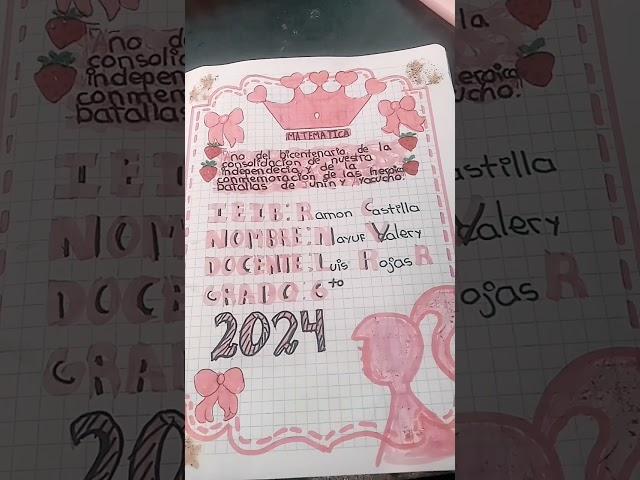 MATEMATICA
Año del bicentenario de la
consolidación de nuestra
independecia y de la
conmemoración de las heroica
batallas de Junín y Ayacucho.
IEIB: Ramon Castilla
NOMBRE: Nayuf Valery
DOCENTE: Luis Rojas R
GRADO: 6to
2024